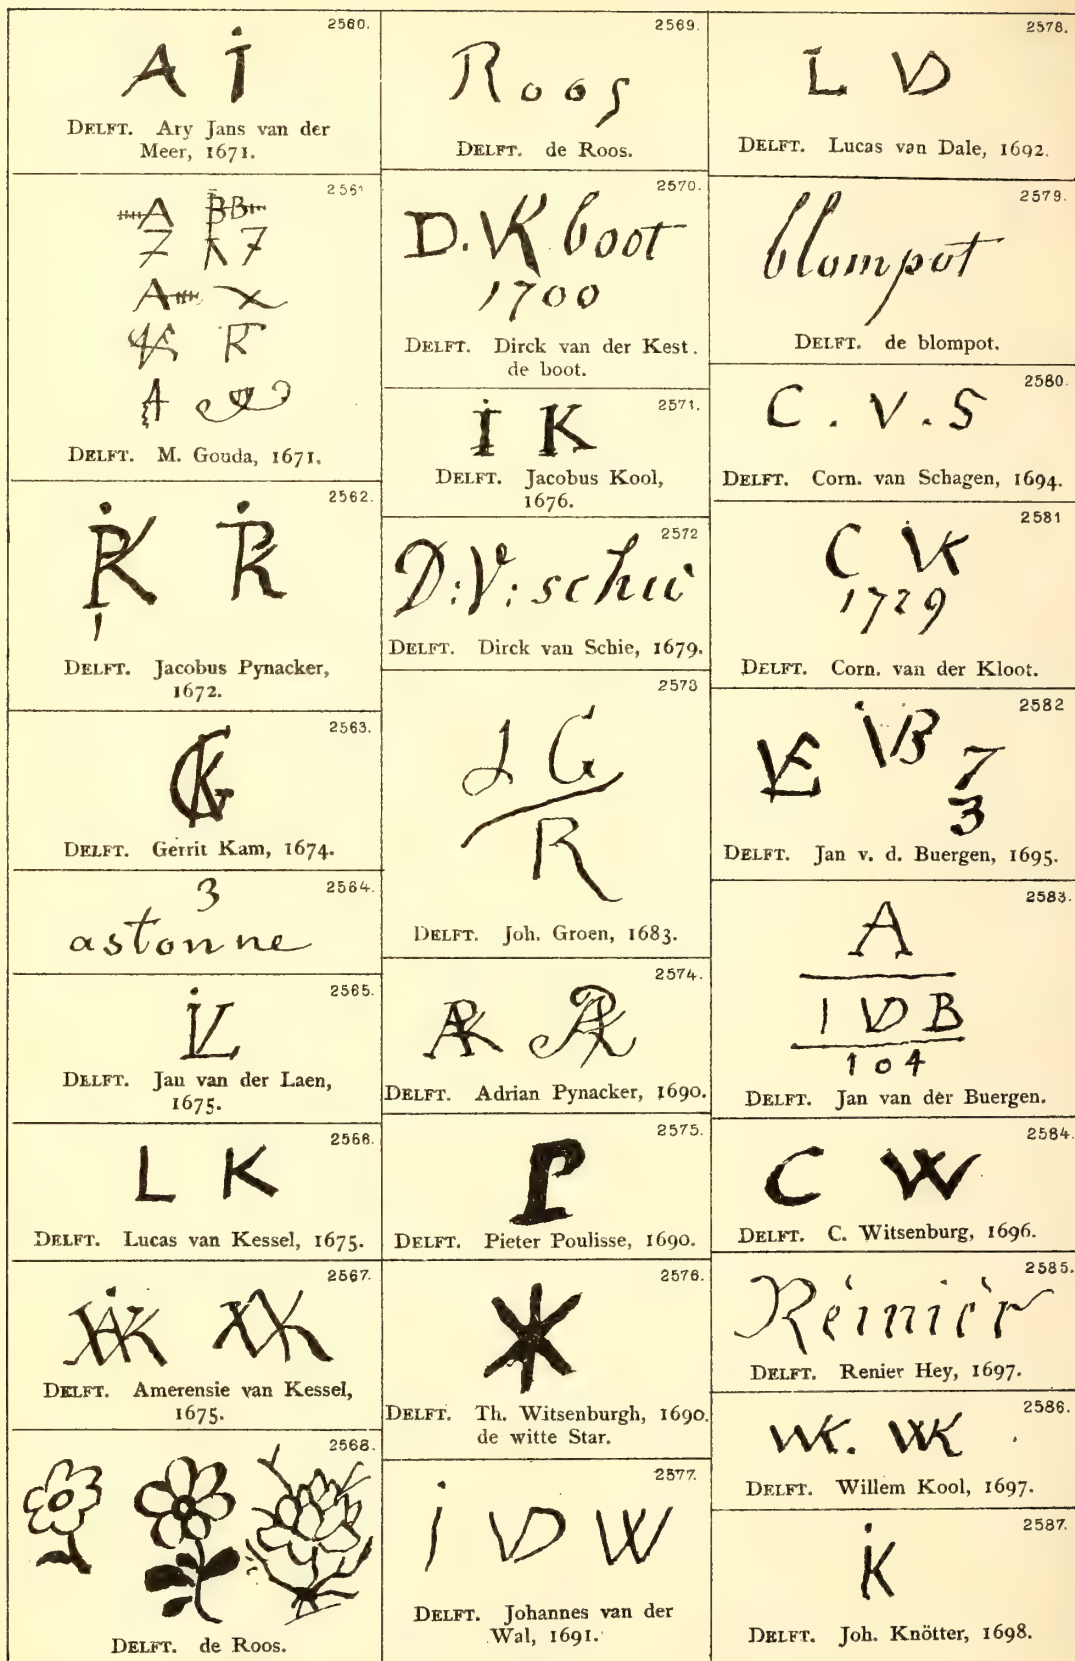 2560.
A i
DELFT. Ary Jans van der
Meer, 1671.
2561
A BB
7 K 7
A
R
A
DELFT. M. Gouda, 1671.
2562.
DELFT. Jacobus Pynacker,
1672.
2563.
GK
DELFT. Gerrit Kam, 1674.
2564.
3
astonne
2565.
iVL
DELFT. Jan van der Laen,
1675.
2566.
L K
DELFT. Lucas van Kessel, 1675.
2567.
DELFT. Amerensie van Kessel,
1675.
2568.
DELFT. de Roos.
2569.
Roos
DELFT. de Roos.
2570.
D. VK boot
1700
DELFT. Dirck van der Kest.
de boot.
2571.
i K
DELFT. Jacobus Kool,
1676.
2572
D:V: schie
DELFT. Dirck van Schie, 1679.
2573
J G
R
DELFT. Joh. Groen, 1683.
2574.
APK APK
DELFT. Adrian Pynacker, 1690.
2575.
P
DELFT. Pieter Poulisse, 1690.
2576.
DELFT. Th. Witsenburgh, 1690.
de witte Star.
2577.
i VD W
DELFT. Johannes van der
Wal, 1691.
2578.
L VD
DELFT. Lucas van Dale, 1692.
2579.
blompot
DELFT. de blompot.
2580.
C . V . S
DELFT. Corn. van Schagen, 1694.
2581
C VK
1729
DELFT. Corn. van der Kloot.
2582
VE iVB 7
3
DELFT. Jan v. d. Buergen, 1695.
2583.
A
I VD B
104
DELFT. Jan van der Buergen.
2584.
C W
DELFT. C. Witsenburg, 1696.
2585.
Reinier
DELFT. Renier Hey, 1697.
2586.
WK. WK
DELFT. Willem Kool, 1697.
2587.
iK
DELFT. Joh. Knötter, 1698.